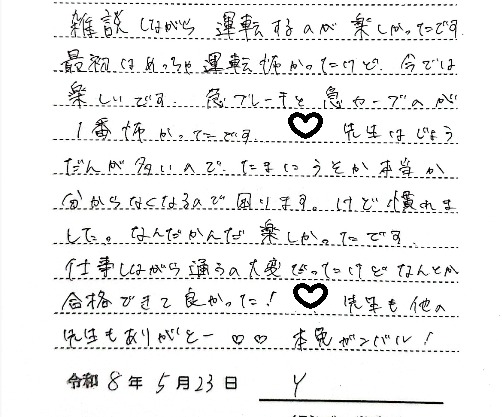 雑談しながら 運転するのが 楽しかったです
最初はめっちゃ運転怖かったけど、今では
楽しいです。急ブレーキと急カーブのが
1番怖かったです。♡ 先生はじょう
だんが多いので、たまにうそか本当か
分からなくなるので困ります。けど慣れま
した。なんだかんだ楽しかったです
仕事しながら通うの大変だったけどなんとか
合格できて良かった！♡ 先生も他の
先生もありがとー ♡ ♡ 本免ガンバル！
令和 8 年 5 月 23 日 Y